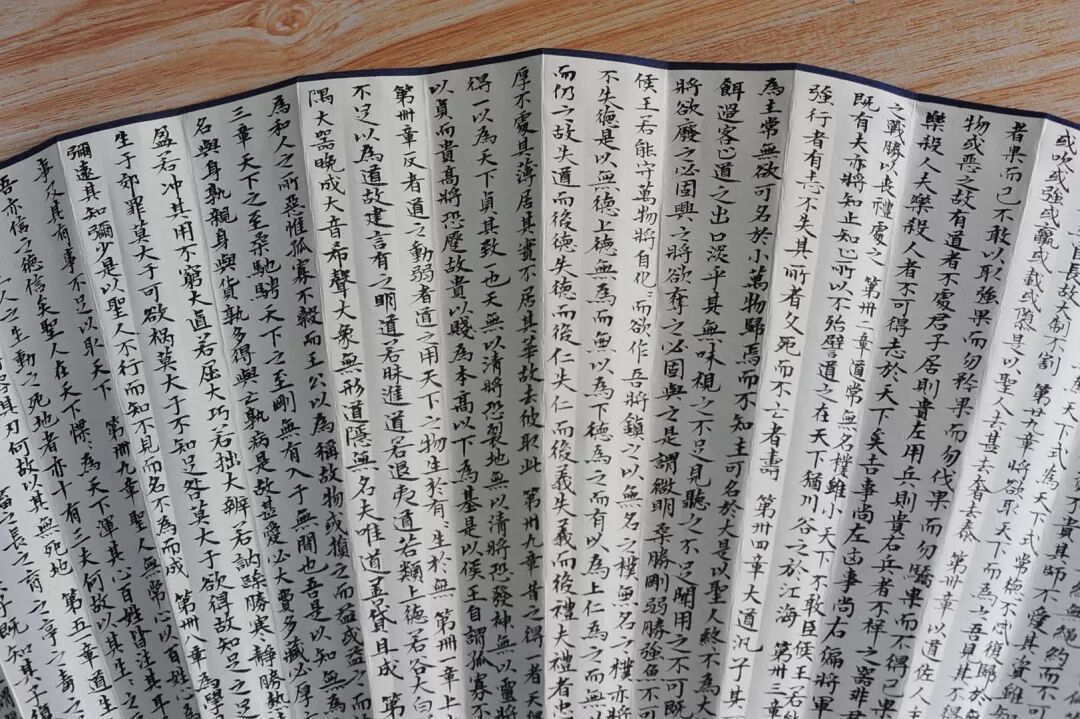 無繩約而不可
貴其師不愛其資雖
天下式為天下式常德不忒復歸於
官長故大制不割 第廿九章 將欲取天下而為之吾見其不得
或吹或強或羸或載或隳是以聖人去甚去奢去泰 第卅章 以道佐人主
者果而已不敢以取強果而勿矜果而勿伐果而勿驕果而不得已果
物或惡之故有道者不處君子居則貴左用兵則貴右兵者不祥之器非君
樂殺人夫樂殺人者不可得志於天下矣吉事尚左凶事尚右偏將軍
之戰勝以喪禮處之 第卅二章道常無名樸雖小天下不敢臣侯王若能
既有夫亦將知止知止所以不殆譬道之在天下猶川谷之於江海 第卅三章
強行者有志不失其所者久死而不亡者壽 第卅四章 大道汎子其
為主常無欲可名於小萬物歸焉而不知主可名於大是以聖人終不為大
餌過客止道之出口淡乎其無味視之不足見聽之不足聞用之不可既
將欲廢之必固興之將欲奪之必固與之是謂微明柔勝剛弱勝強魚不可
侯王若能守萬物將自化〻而欲作吾將鎮之以無名之樸無名之樸亦將
不失德是以無德上德無為而無以為下德為之而有以為上仁為之而無
而仍之故失道而後德失德而後仁失仁而後義失義而後禮夫禮者忠
厚不處其薄居其實不居其華故去彼取此 第卅九章昔之得一者天得
得一以為天下貞其致一也天無以清將恐裂地無以清將恐發神無以靈將
以貞而貴高將恐蹷故貴以賤為本高以下為基是以侯王自謂孤寡不
第卌章反者道之動弱者道之用天下之物生於有〻生於無 第卌一章上
不足以為道故建言有之明道若昧進道若退夷道若類上德若谷大白
隅大器晚成大音希聲大象無形道隱無名夫唯道善貸且成 第
為和人之所惡惟孤寡不穀而王公以為稱故物或損之而益或益之而
三章 天下之至柔馳騁天下之至剛無有入于無間也吾是以知無為
名與身孰親身與貨孰多得與亡孰病是故甚愛必大費多藏必厚
盈若冲其用不窮大直若屈大巧若拙大辨若訥躁勝寒靜勝熱
生于郊罪莫大于可欲禍莫大于不知足咎莫大于欲得故知足之足
彌遠其知彌少是以聖人不行而知不見而名不為而成 第卌八章為學
事及其有事不足以取天下 第卌九章 聖人無常心以百姓心
吾亦信之德信矣聖人在天下惵〻為天下渾其心百姓皆注其耳
之生動之死地者亦十有三夫何故以其生〻之
其刃何故以其無死地 第五一章 道生
畜之長之育之亭之毒之
既知其子復